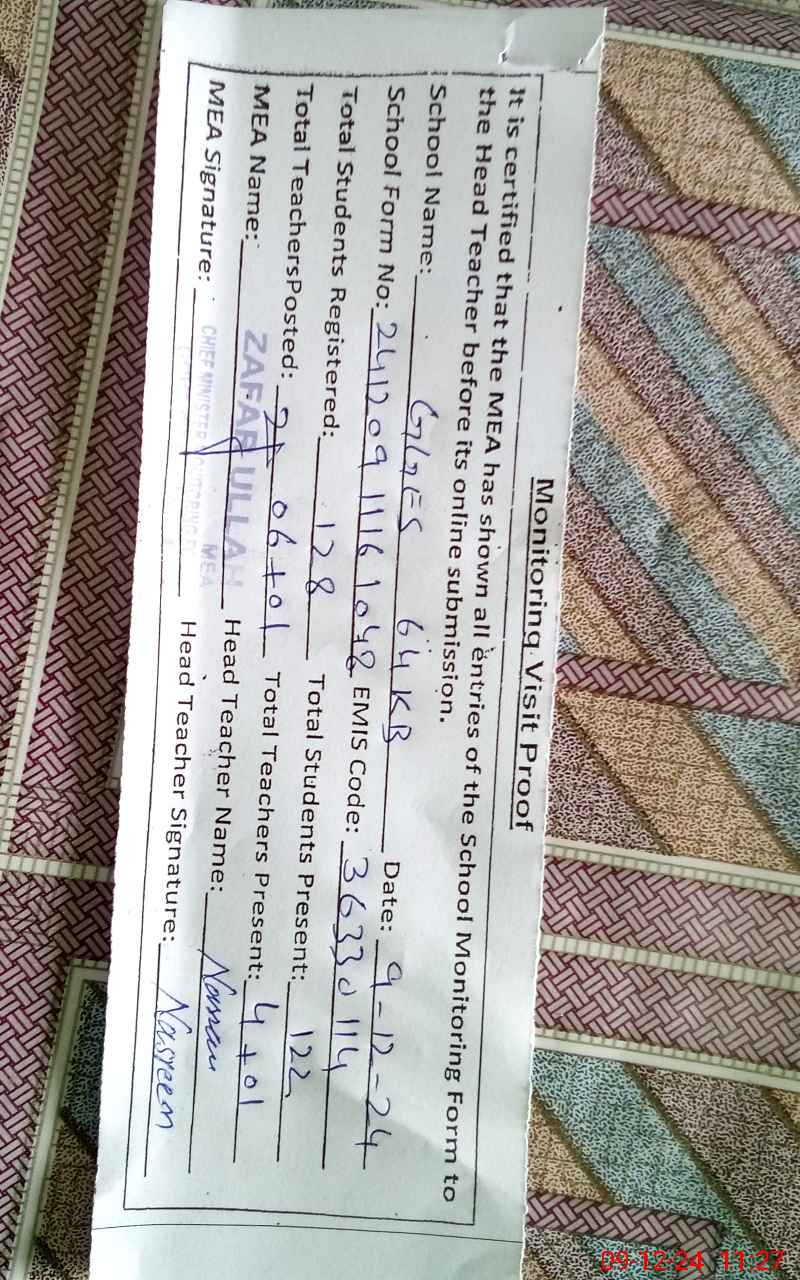 Monitoring Visit Proof
It is certified that the MEA has shown all entries of the School Monitoring Form to
the Head Teacher before its online submission.
School Name: GGES 64 KB Date: 9-12-24
School Form No: 24120911161048 EMIS Code: 36330114
Total Students Registered: 128 Total Students Present: 122
Total TeachersPosted: 06+01 Total Teachers Present: 4+01
MEA Name: ZAFAR ULLAH Head Teacher Name:
MEA Signature: Head Teacher Signature: Nasreen
CHIEF MINISTER MONITORING
MEA
09-12-24 11:27